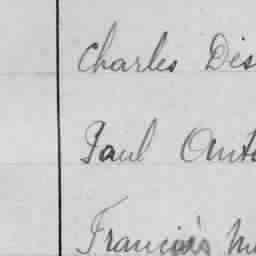 Charles Dis
Paul Anto
Francis M